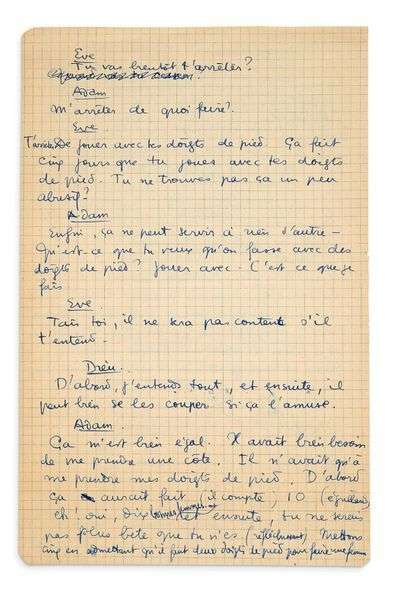 Eve
Tu vas bientôt t'arrêter?
Adam
M'arrêter de quoi faire?
Eve
T'arrêter De jouer avec tes doigts de pied. Ça fait
cinq jours que tu joues avec tes doigts
de pied. Tu ne trouves pas ça un peu
abusif?
Adam
Enfin, ça ne peut servir à rien d'autre –
Qu'est-ce que tu veux qu'on fasse avec des
doigts de pied? Jouer avec. C'est ce que je
fais
Eve
Tais toi, il ne sera pas content s'il
t'entend.
Dieu.
D'abord, j'entends tout, et ensuite, il
peut bien se les couper si ça l'amuse.
Adam.
Ça m'est bien égal. Il avait bien besoin
de me prendre une côte. Il n'avait qu'à
me prendre mes doigts de pied. D'abord
ça aurait fait (il compte) 10
eh! oui, dix bonnes femmes, et ensuite, tu ne serais
pas plus bête que tu n'es (réfléchissant) Mettons
cinq en admettant qu'il faut deux doigts de pied pour faire une femme